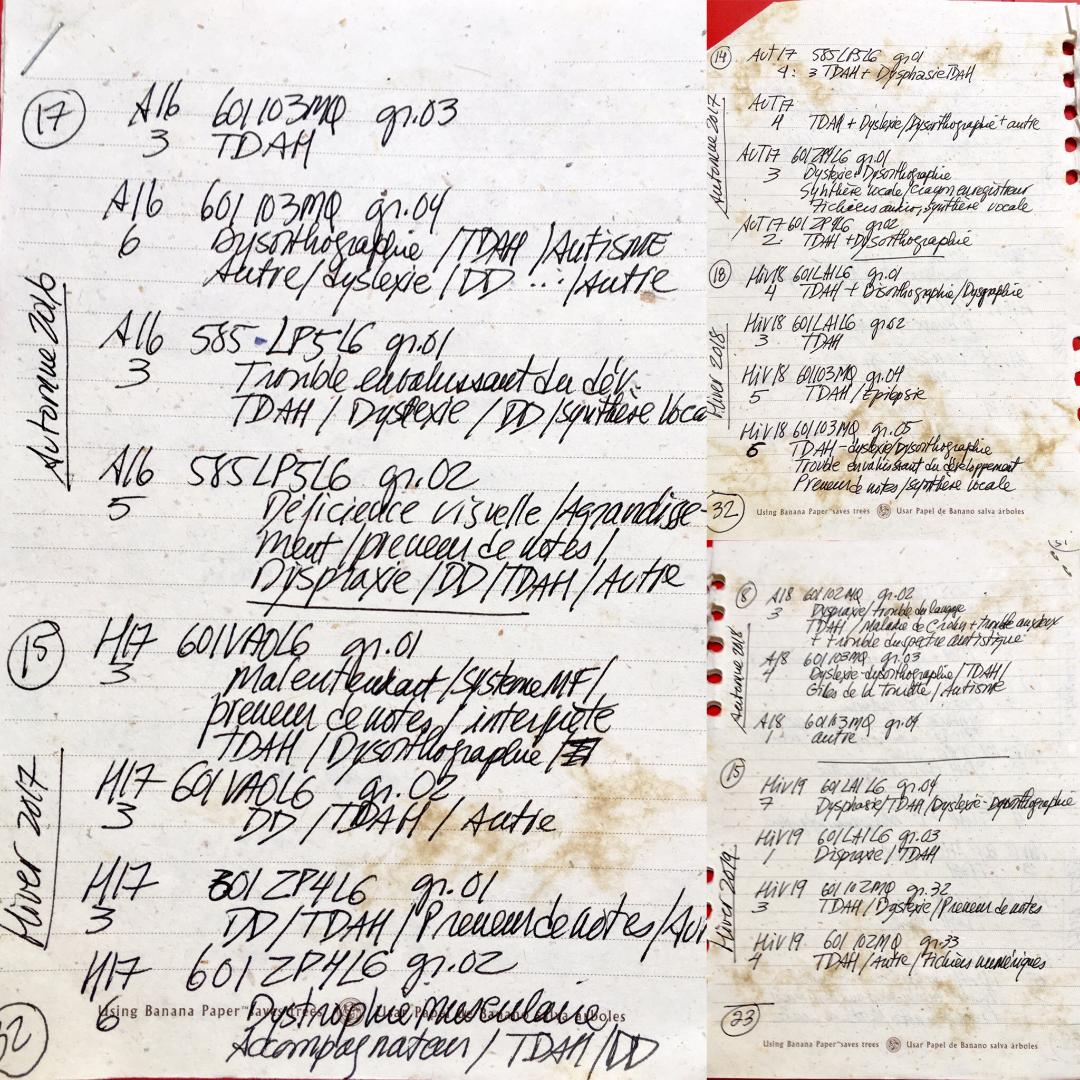 17
A16 601103MQ gr.03
3 TDAH
A16 601103MQ gr.04
6 Dysorthographie / TDAH / Autisme
Autre / dyslexie / DD ... / Autre
Automne 2016
A16 585-LP5L6 gr.01
3 Trouble envahissant du dév.
TDAH / Dyslexie / DD / synthèse Voca
A16 585LP5L6 gr.02
5 Déficience visuelle / Agrandisse-
ment / preneur de notes /
Dyspraxie / DD / TDAH / Autre
15
H17 601VA0L6 gr.01
3 Malentendant / système MF /
preneur de notes / interprète
TDAH / Dysorthographie /
Hiver 2017
H17 601VA0L6 gr.02
3 DD / TDAH / Autre
H17 601ZP4L6 gr.01
3 DD / TDAH / Preneur de notes / Au
H17 601ZP4L6 gr.02
6 Dystrophie musculaire
Using Banana Paper™ saves trees Usar Papel de Banano salva árboles
Accompagnateur / TDAH / DD
32
14 AUT17 585LP5L6 gr01
4 : 3 TDAH + Dysphasie TDAH
Automne 2017
AUT17
4 TDAH + Dyslexie/Dysorthographie + autre
AUT17 601ZP4L6 gr.01
3 Dyslexie + Dysorthographie
Synthèse vocale/crayon enregistreur
Fichiers audio, synthèse vocale
AUT17 601ZP4L6 gr.02
2 TDAH + Dysorthographie
18 Hiv18 601LA1L6 gr.01
4 TDAH + Disorthographie/Dysgraphie
Hiver 2018
Hiv18 601LA1L6 gr02
3 TDAH
Hiv18 601103MQ gr.04
5 TDAH / Epilepsie
Hiv18 601103MQ gr.05
6 TDAH - dyslexie/Dysorthographie
Trouble envahissant du développement
Preneur de notes / synthèse vocale
32
Using Banana Paper™ saves trees Usar Papel de Banano salva árboles
8 A18 601102MQ gr.02
3 Dyspraxie / trouble du langage
TDAH / Maladie de Crohn + trouble anxieux
+ trouble du spectre autistique
Automne 2018
A18 601103MQ gr.03
4 Dyslexie-dysorthographie / TDAH /
Gilles de la Tourette / Autisme
A18 601103MQ gr.04
1 autre
15 Hiv19 601LA1L6 gr.04
7 Dysphasie/TDAH/Dyslexie-Dysorthographie
Hiv19 601LA1L6 gr.03
1 Dispraxie / TDAH
Hiver 2019
Hiv19 601102MQ gr.32
3 TDAH / Dyslexie / Preneur de notes
Hiv19 601102MQ gr.33
4 TDAH / Autre / Fichiers numériques
23
Using Banana Paper™ saves trees Usar Papel de Banano salva árboles